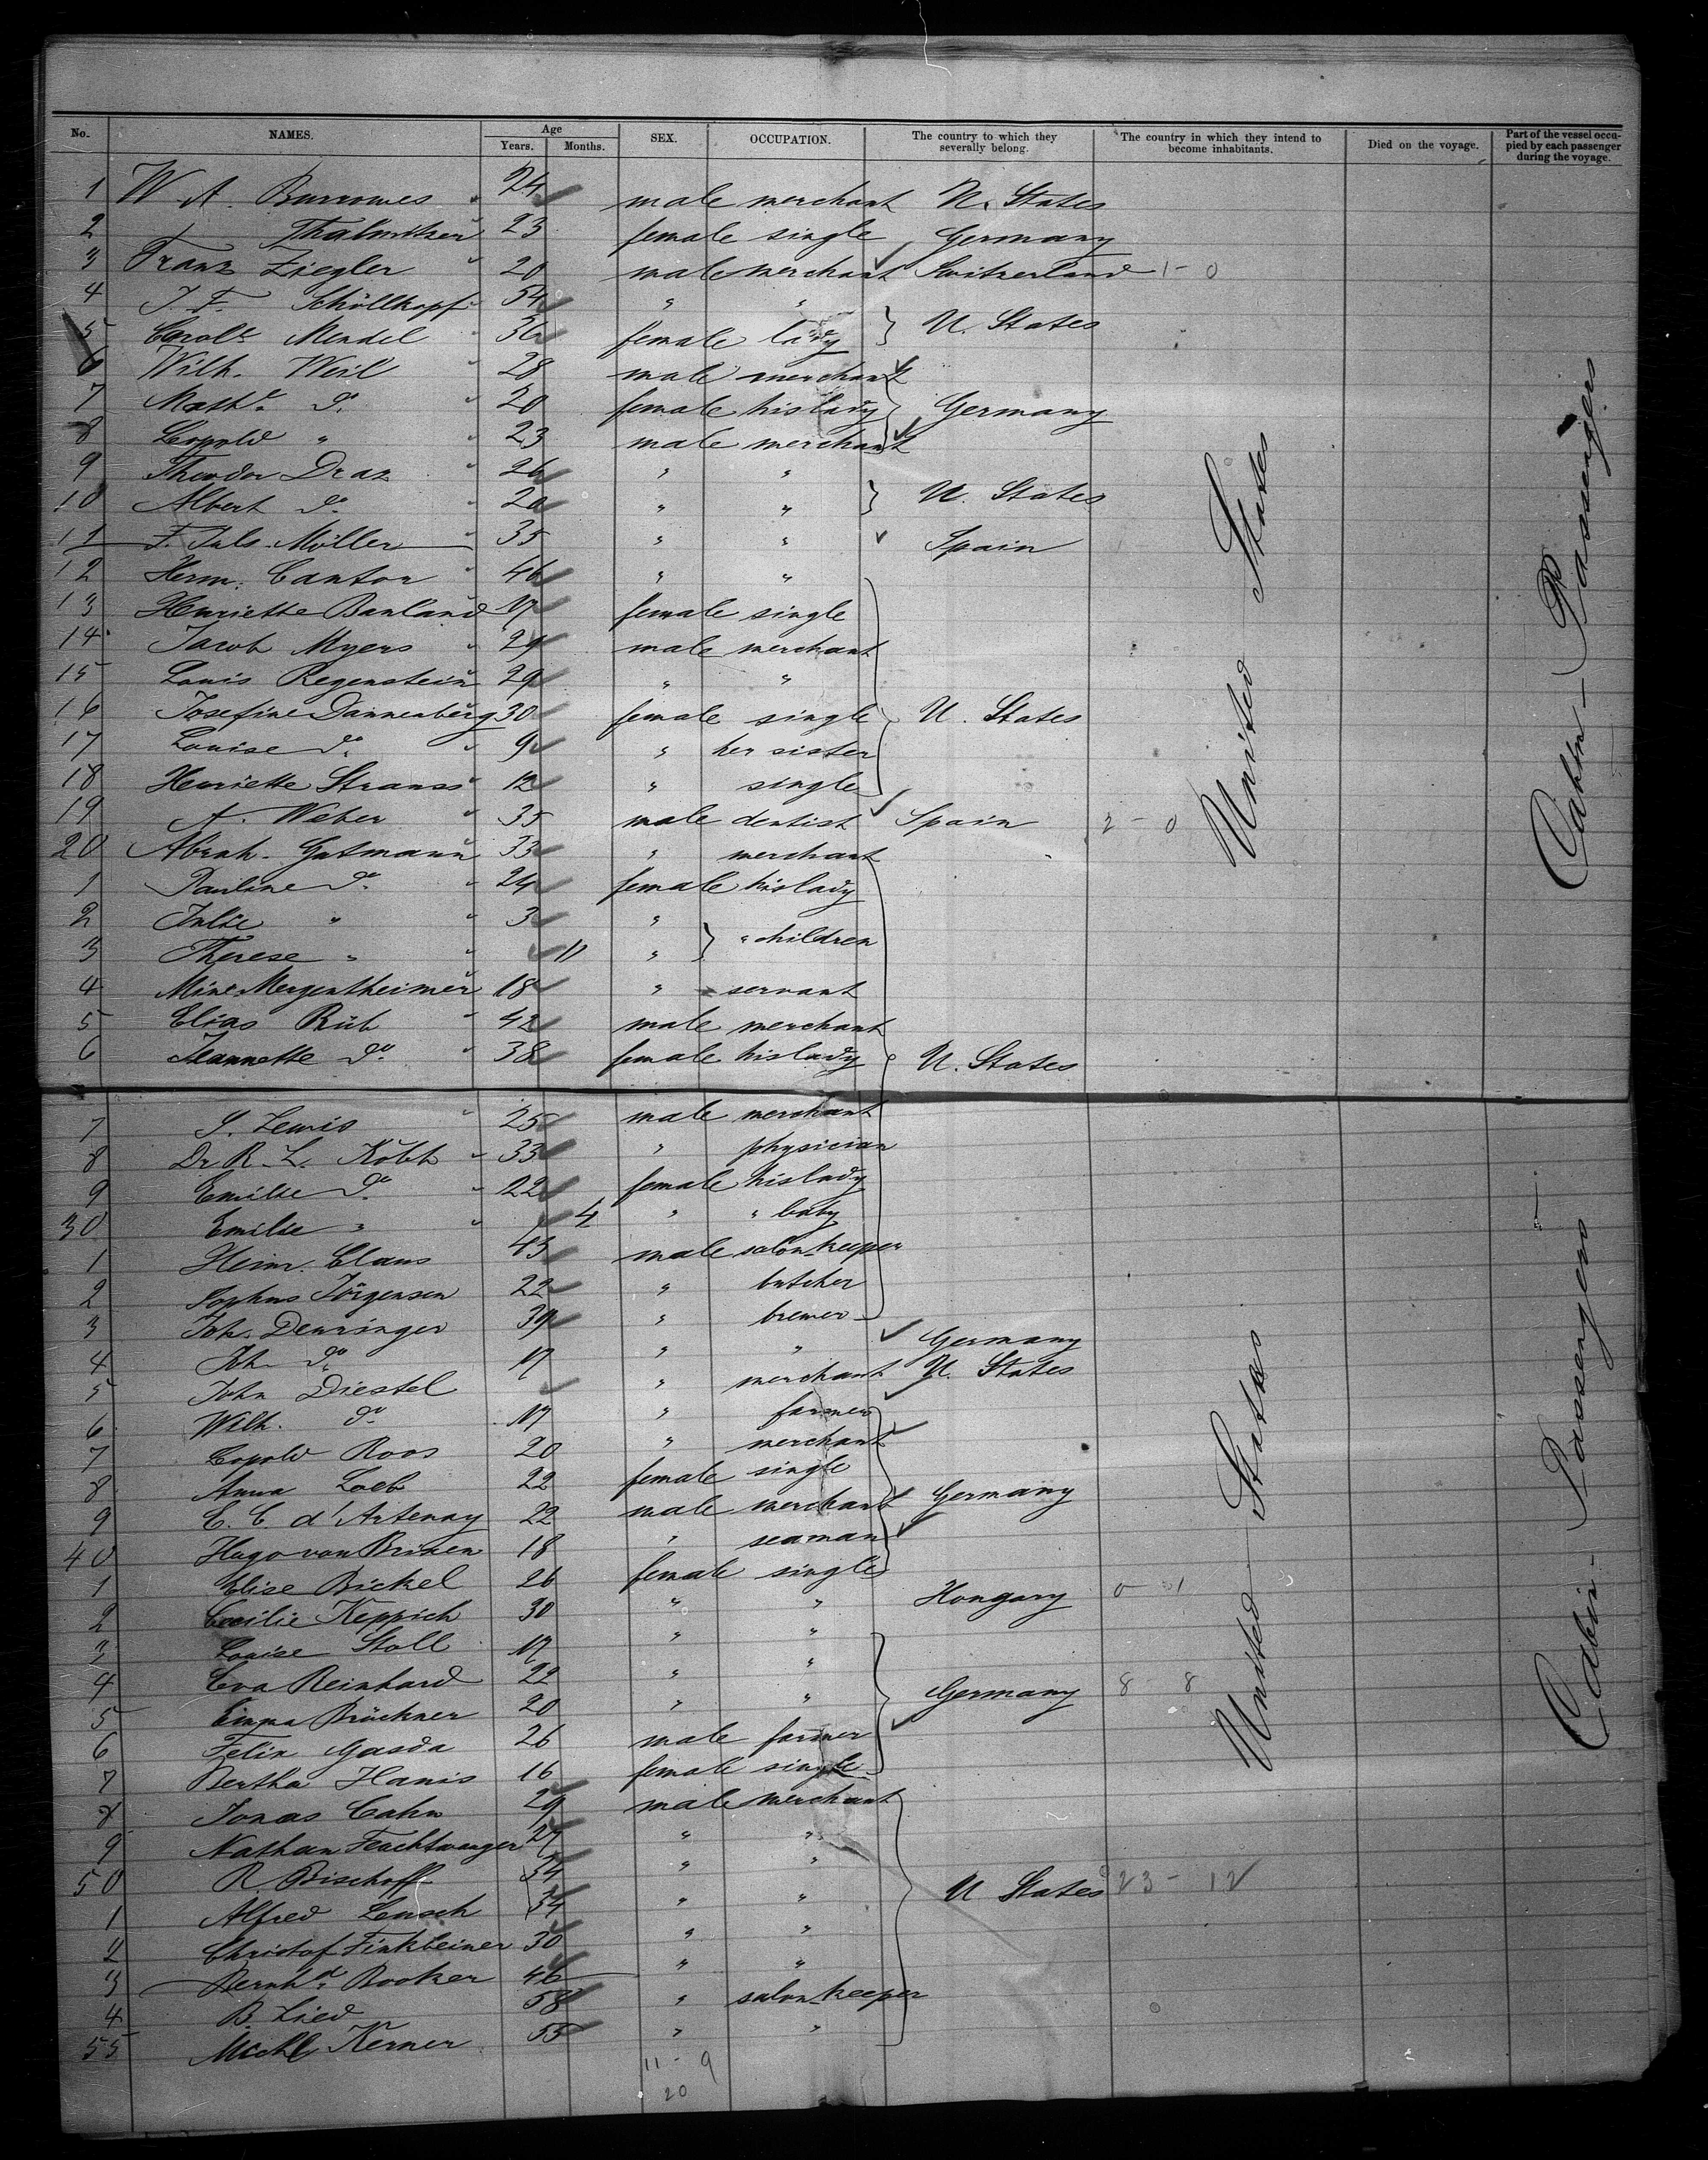 No. NAMES. Age Years. Months. SEX. OCCUPATION. The country to which they severally belong. The country in which they intend to become inhabitants. Died on the voyage. Part of the vessel occupied by each passenger during the voyage.
1 W. A. Burrowes " 24 male merchant U. States
2 Thalmitzer " 23 female single Germany
3 Franz Ziegler " 20 male merchant Switzerland 1 - 0
4 J. F. Schöllkopf " 54 " "
5 Carol. Mendel " 36 female lady } U. States
6 Wilh. Weil " 28 male merchant
7 Math. do. " 20 female his lady } Germany
8 Leopold " " 23 male merchant
9 Theodor Draz " 26 " "
10 Albert do. " 20 " " } U. States
11 F. Juls. Möller " 35 " " Spain
12 Herm. Cantor " 46 " "
13 Henriette Banland 17 female single
14 Jacob Myers " 29 male merchant
15 Louis Regenstein " 29 " "
16 Josefine Dannenberg 30 female single } U. States
17 Louise do. " 9 " her sister
18 Henriette Strauss " 12 " single
19 A. Weber " 35 male dentist Spain 2 - 0
20 Abrah. Gutmann " 33 " merchant
1 Pauline do. " 24 female his lady
2 Julie " " 3 "
3 Therese " " 11 " } " children
4 Mine Mergentheimer " 18 " servant
5 Elias Rüb " 42 male merchant
6 Jeannette do. " 38 female his lady U. States
7 S. Lewis " 25 male merchant
8 Dr. R. L. Kobb " 33 " physician
9 Emilie do. " 22 female his lady
30 Emilie " " 4 " " baby
1 Heinr. Claus 43 male salon-keeper
2 Sophus Jörgensen 22 " butcher
3 Joh. Denringer 39 " brewer
4 Joh. do. 17 " " Germany
5 John Diestel " merchant U. States
6 Wilh. do. 17 " farmer
7 Leopold Roos 20 " merchant
8 Anna Loeb 22 female single
9 C. C. d'Artenay 22 male merchant Germany
40 Hugo von Brixen 18 " seaman
1 Elise Bickel 26 female single
2 Cecilie Keppich 30 " " Hongary 0 - 1
3 Louise Stoll 17 " "
4 Eva Reinhard 22 " "
5 Emma Brückner 20 " " Germany 8 - 8
6 Felix Gasda 26 male farmer
7 Bertha Hanis 16 female single
8 Jonas Cahn 29 male merchant
9 Nathan Feuchtwanger 27 " "
50 R Bischoff 34 " "
1 Alfred Lensch 34 " " U States 23 - 12
2 Christof Finkbeiner 30 " "
3 Bernhd. Booker 46 " "
4 B. Lied 58 " salon-keeper
55 Michl Kerner 55 " "
11 - 9
20
United States
United States
Cabin - Passengers
Cabin - Passengers